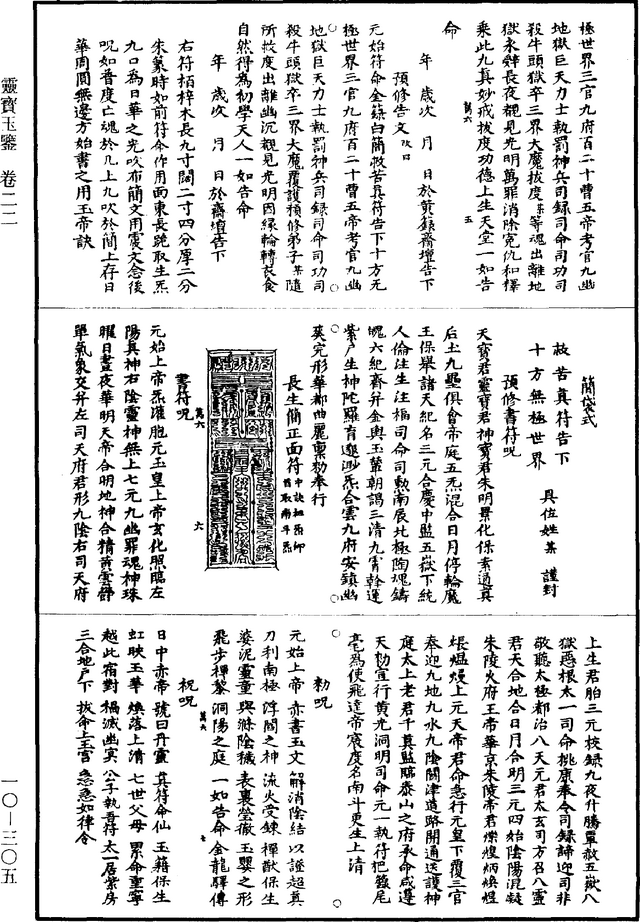 靈寶玉鑒 卷二二
一〇—三〇五
極世界三官九府百二十曹五帝考官九幽
地獄巨天力士執罰神兵司録司命司功司
殺牛頭獄卒三界大魔拔度某等魂出離地
獄永辭長夜覩見光明萬罪消除冤仇和釋
乘此九真妙戒拔度功德上生天堂一如告
命
年 歲次 月 日於黃籙齋壇告下
預修告文改日
元始符命金籙白簡救苦真符告下十方无
極世界三官九府百二十曹五帝考官九幽
地獄巨天力士執罰神兵司録司命司功司
殺牛頭獄卒三界大魔覆護預修弟子某隨
所救度出離幽沉覩見光明因緣輪轉衣食
自然得為初學天人一如告命
年 歲次 月 日於齋壇告下
右符栢梓木長九寸闊二寸四分厚二分
朱篆時如前符命作用面東長跪取生炁
九口為日華之光吹布簡文用震文念後
呪如普度亡魂於几上九吹於簡上存日
華周圓無邊方始書之用玉帝訣
簡袋式
救苦真符告下
十方無極世界 具位姓某 謹封
預修書符呪
天寶君靈寶君神寶君朱明景化保素過真
后土九壘俱會帝庭五炁混合日月停輪魔
王保舉諸天紀名三元合慶中監五嶽下統
人倫注生注福司命司勳南辰北極陶魂鑄
魄六紀齋并金輿玉輦朝謁三清九霄斡運
紫戶生神陀羅育邈渺炁合雲九府安鎮幽
爽完形華都曲麗稟勑奉行
長生簡正面符
書符呪
元始上帝炁灌胞元玉皇上帝玄化照臨左
陽真神右陰靈神無上七元九幽罪魂神珠
曜日晝夜華明天帝合明地神合精黃雲靜
單氣象交并左司天府君形九陰右司天府
上生君胎三元校録九夜什勝單救五嶽八
獄惡根太一司命桃康奉令司録諦迎司非
敬聽太極都治八天元君太玄司方召八靈
君天合地合日月合明三元四始陰陽混凝
朱陵火府王帝華京朱陵帝君爍煌炳煥煌
煜熅熳上元天帝君命急行元皇下覆三官
奉迎九地九水九陰關津道路開通送護神
庭太上老君千真監臨泰山之府承命咸遵
天勑宣行黄光洞明司命元一執符把籙尾
毫為使飛達帝宸度名南斗更生上清
勑呪
元始上帝 赤書玉文 解消陰結 以證超真
刀利南極 浮閻之神 流火受鍊 稗猷保生
婆泥靈童 與滌陰穢 表裏瑩徹 玉嬰之形
飛步禪黎 洞陽之庭 一如告命 金龍驛傳
祝呪
日中赤帝 號曰丹靈 真符命仙 玉籍保生
虹映玉華 煥落上清 七世父母 累命重寧
越此宿對 禍滅幽冥 公子執吾符 太一居紫房
三合地戶下 拔命上玉宮 急急如律令